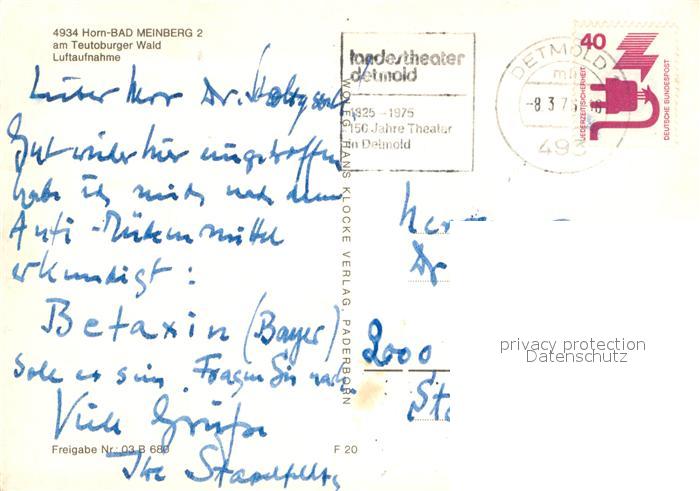 4934 Horn-BAD MEINBERG 2
am Teutoburger Wald
Luftaufnahme
Lieber Herr Dr.
Gut wieder hier eingetroffen
habe ich mich nach dem
Anti-Mückenmittel
erkundigt:
Betaxin (Bayer)
soll es sein. Fragen Sie nach.
Viele Grüße
Ihr
Freigabe Nr.: 03 B 680
F 20
WOLFG. HANS KLOCKE VERLAG, PADERBORN
landestheater
detmold
1825-1975
150 Jahre Theater
in Detmold
DETMOLD
-8.3.7
493
40
JEDERZEIT SICHERHEIT
DEUTSCHE BUNDESPOST
Dr
2000
privacy protection
Datenschutz